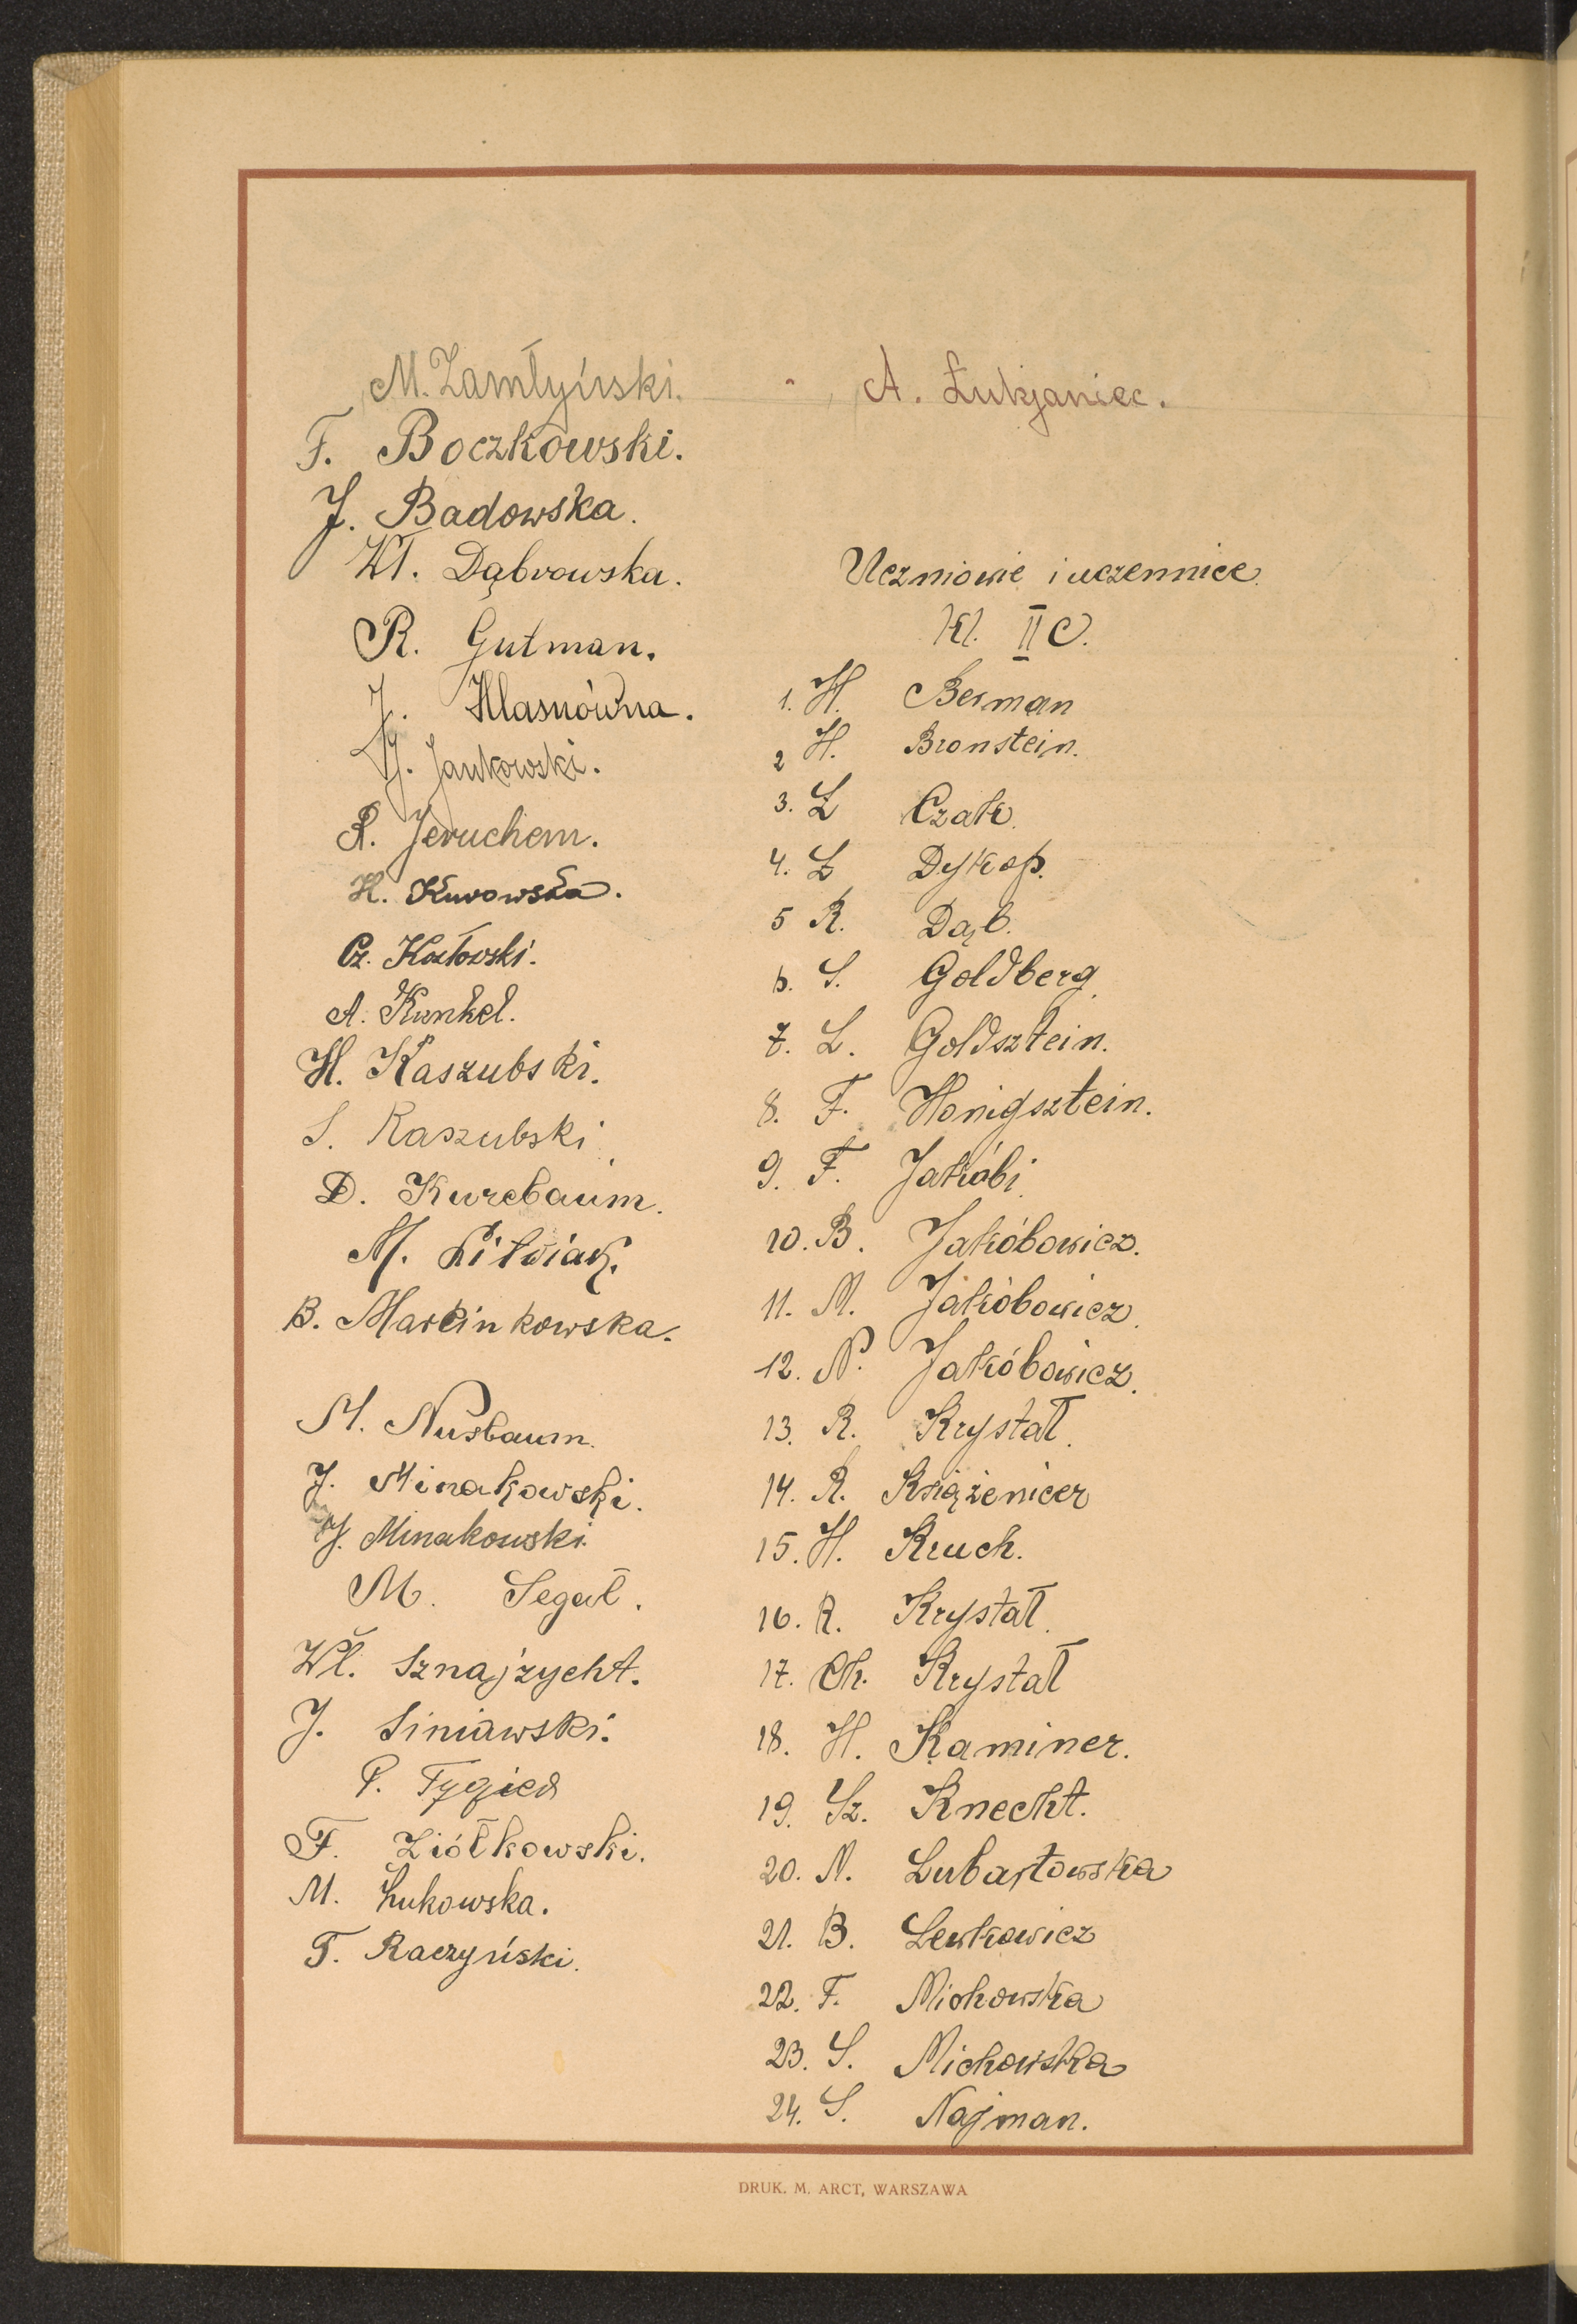 M. Zamłyński.
F. Boczkowski.
J. Badowska.
Wł. Dąbrowska.
R. Gutman.
J. Hlasnówna.
J. Jankowski.
R. Jeruchem.
H. Kurowska.
Cz. Kozłowski.
A. Kunkel.
H. Kaszubski.
S. Kaszubski
D. Kurcbaum.
M. Litwiak.
B. Marcinkowska.
M. Nusbaum.
J. Minakowski.
J. Minakowski.
M. Segał.
Wł. Sznajzycht.
J. Siniawski.
P. Tygiel
F. Ziółkowski.
M. Łukowska.
T. Raczyński.
A. Łukjaniec.
Uczniowie i uczennice
Kl. II C.
1. H. Berman
2 H. Bronstein.
3. Ł Czak.
4. Ł Dykop.
5 R. Dąb.
6. S. Goldberg
7. L. Goldsztein.
8. F. Honigsztein.
9. F. Jakóbi
10. B. Jakóbowicz.
11. M. Jakóbowicz.
12. N. Jakóbowicz.
13. R. Kryształ.
14. R. Książenicer
15. H. Kruch.
16. R. Kryształ.
17. Ch. Kryształ
18. H. Kaminer.
19. Sz. Knecht.
20. M. Lubartowska
21. B. Lewkowicz
22. F. Michowska
23. S. Michowska
24. S. Najman.
DRUK. M. ARCT, WARSZAWA